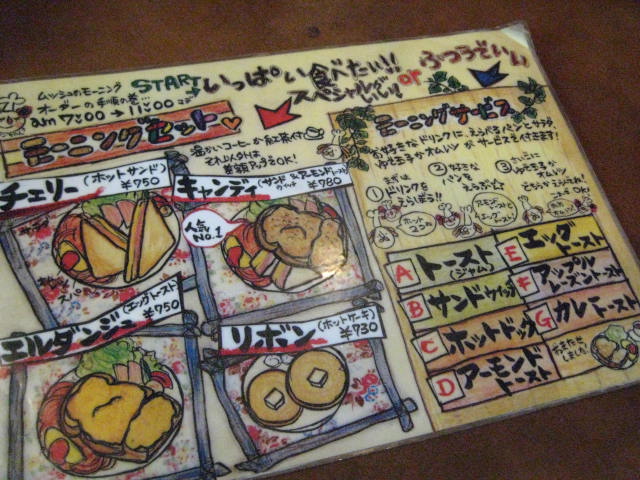 ムッシュのモーニング
オーダーの手順の巻…
am 7:00 → 11:00まで
START
いっぱい食べたい!!
スペシャル
or
ふつうでいい
モーニングセット
温かいコーヒーか紅茶付
それ以外は
差額アップでOK!
チェリー(ホットサンド)
¥750
キャンディ(サンドウィッチ&アーモンドトースト)
¥780
人気
No.1
エルダンジュ(エッグトースト)
¥750
リボン(ホットケーキ)
¥730
モーニングサービス
お好きなドリンクに、えらべるパンとサラダ、
ゆで玉子かオムレツがサービスで付きます!
①まずは
ドリンクを
えらぼう!
②お好きな
パンを
えらぶ
③さいごに
ゆで玉子か
オムレツ
OK!
A トースト(ジャム)
B サンドウィッチ
C ホットドック
D アーモンドトースト
E エッグトースト
F アップルレーズントースト
G カレートースト
おまたせしました!